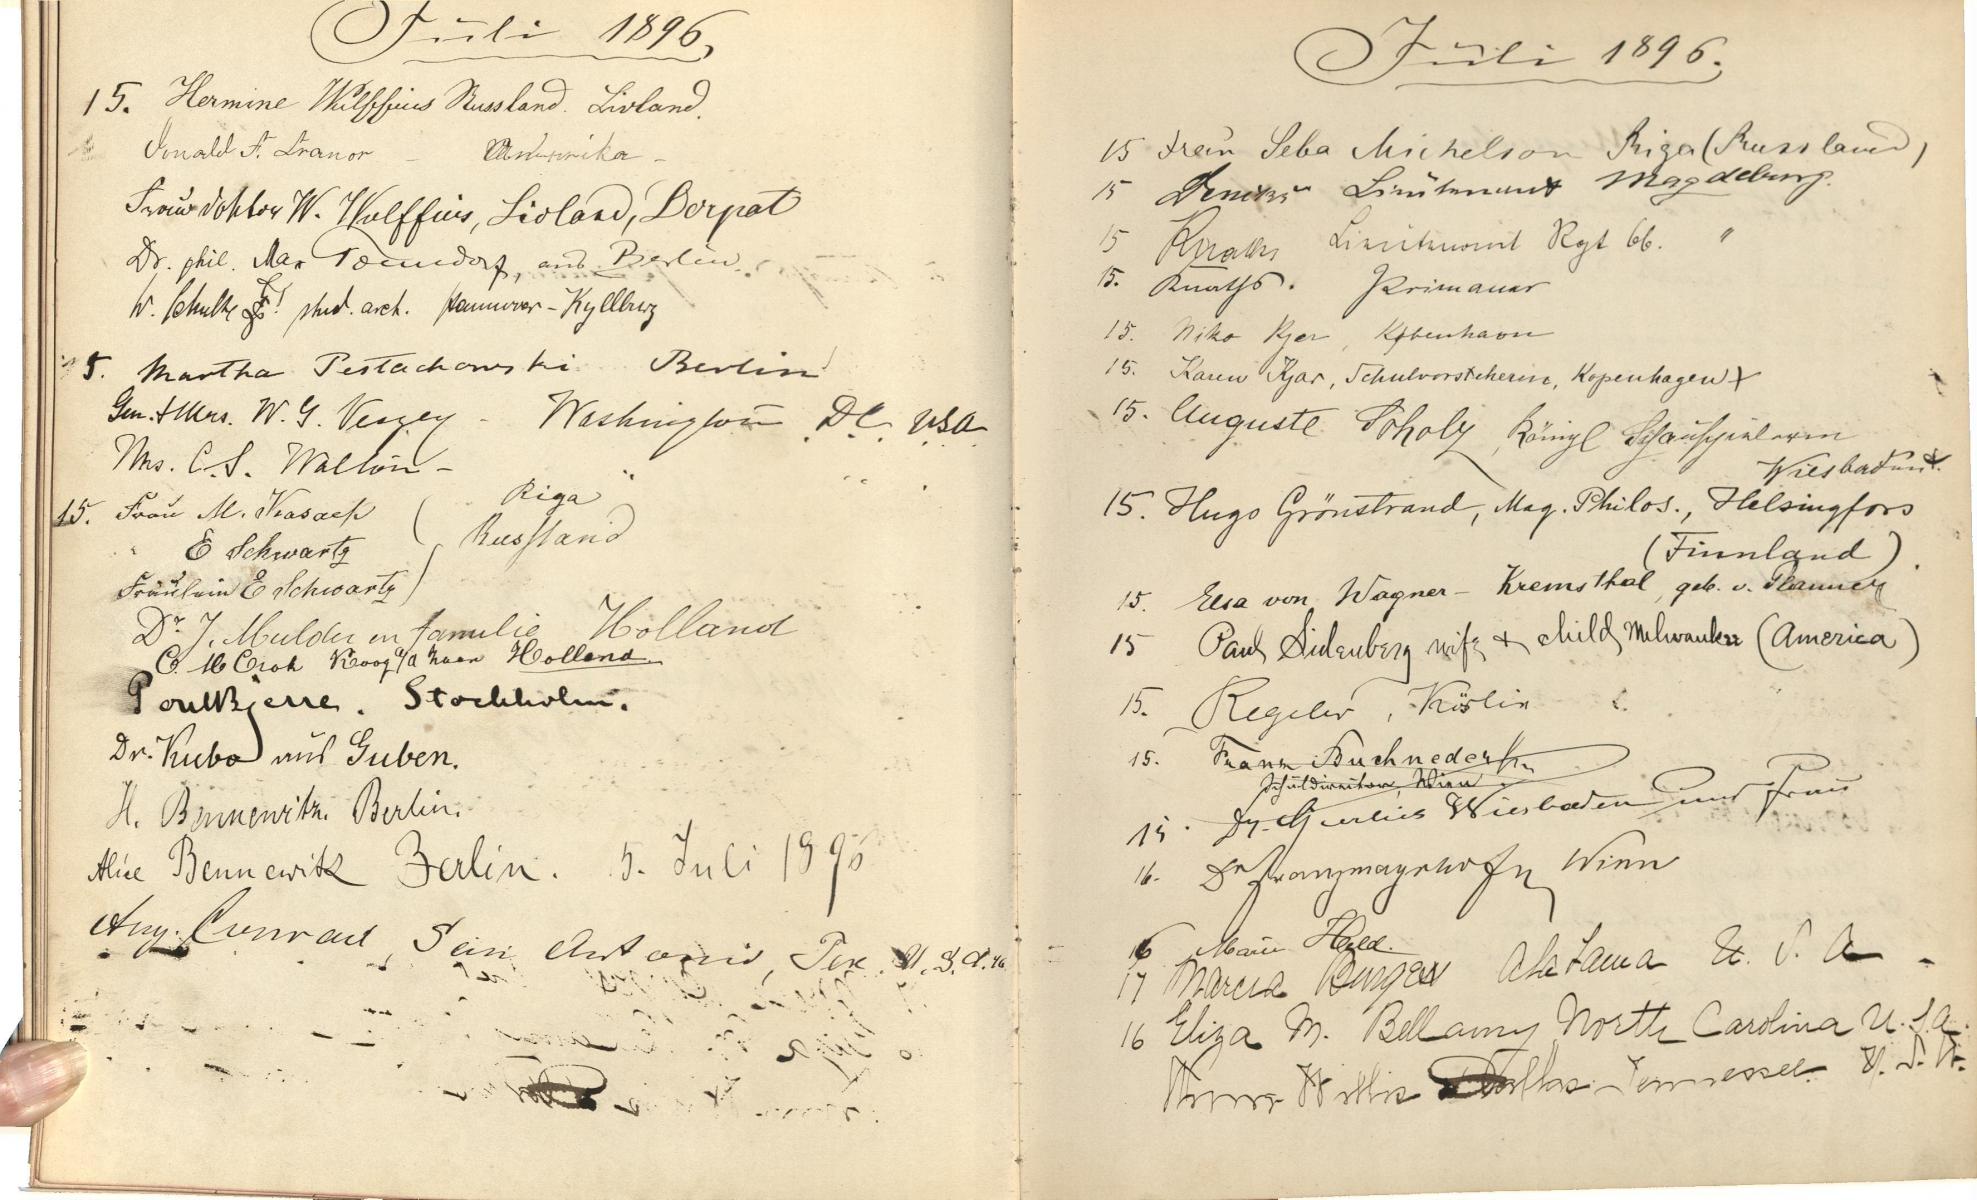 Juli 1896.
15. Hermine Wulffius Russland. Livland.
Donald F. Amerika -
Frau Doktor W. Wulffius, Livland, Dorpat
Dr. phil. Max aus Berlin.
W. Schulte stud. arch. Hannover - Kyllburg
5. Martha Pestachowski Berlin
Gen. & Mrs. W. G. Veazey - Washington D.C. USA
Mrs. C. S. Walton - "
15. Frau M. Riga
E Schwartz Russland
Fräulein E Schwartz
Dr. J. Mulder en familie Holland
Koog a/d Zaan Holland
Poul Bjerre. Stockholm.
Dr. Kubo aus Guben.
H. Bennewitz. Berlin.
Alice Bennewitz Berlin. 5. Juli 1896
Aug. Conrad, San Antonio, Tex. U.S.A.
Juli 1896.
15 Seba Michelson Riga (Russland)
15 Lieutenant Magdeburg.
15 Lieutenant Rgt 66. "
15. Primaner
15. Niko Kjær, København
15. Karen Kjær, Schulvorsteherin, Kopenhagen
15. Auguste Scholz, Königl Schauspielerin
Wiesbaden.
15. Hugo Grönstrand, Mag. Philos., Helsingfors
(Finnland).
15. Elsa von Wagner - Kremsthal, geb. v. Planner
15 Paul Sidenberg wife & child Milwaukee (America)
15. Regeler, Köslin
15. Franz Buchneder
Schuldirector, Wien
15. Dr. Wiesbaden und Frau
16. Dr Franz Mayrhofer Wien
16 Marie Held.
17 Marcia Burges Alabama U. S. A -
16 Eliza M. Bellamy North Carolina U.S.A.
Willis Tennessee U.S.A.